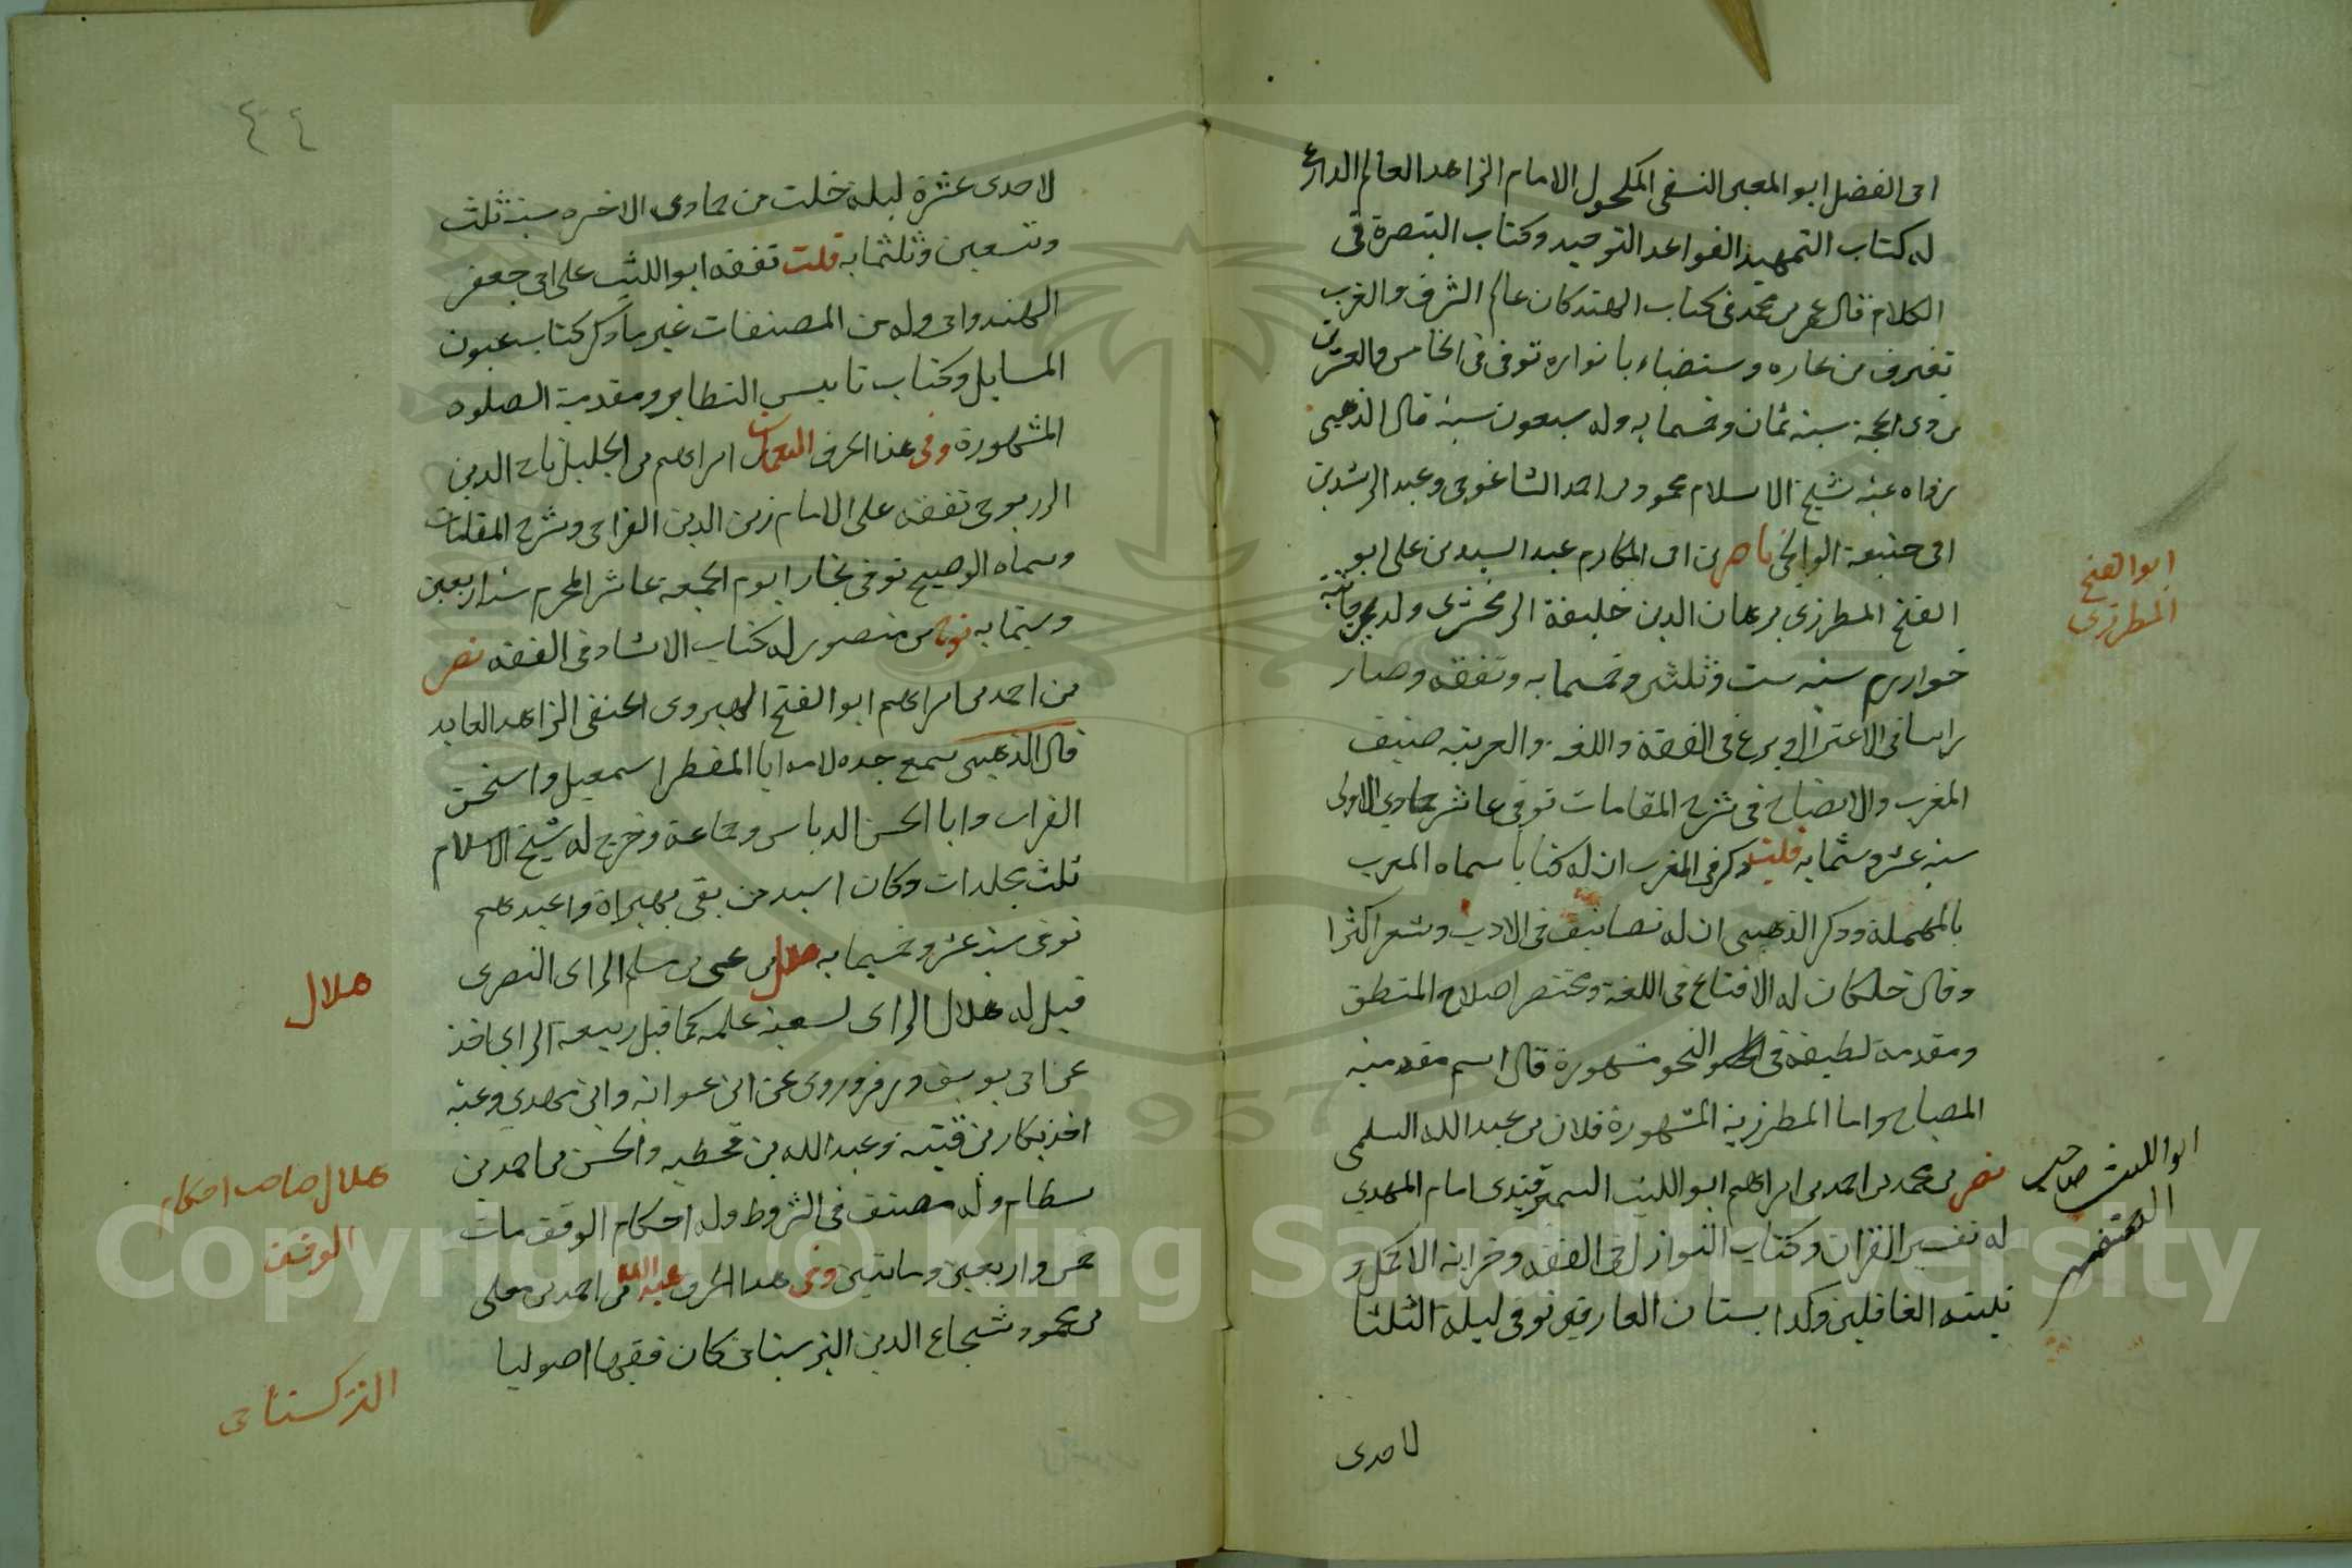 ابى الفضل ابو المعين النسفى المكحول الامام الزاهد العالم البارع
له كتاب التمهيد لقواعد التوحيد وكتاب التبصرة فى
الكلام قال عمر بن محمد فى كتاب القند كان عالم الشرق والغرب
تغترف من بحاره و ستضاء بانواره توفى فى الخامس والعشرين
من ذى الحجة سنة ثمان وخمسمايه وله سبعون سنة قال الذهبى
رواه عنه شيخ الاسلام محمود بن احمد الشاغوجى وعبد الرشيد بن
ابى حنيفة الوالجى ناصر بن ابى المكارم عبد السيد بن على ابو
الفتح المطرزى برهان الدين خليفة الزمخشرى ولد بجرجانية
خوارزم سنة ست وثلثين وخمسمايه وتفقه وصار
راسا فى الاعتزال وبرع فى الفقه واللغه والعربيه صنف
المغرب والايضاح فى شرح المقامات توفى عاشر جمادى الاولى
سنة عشر وستمايه قلت ذكر فى المغرب ان له كتابا سماه المعرب
بالمهملة وذكر الذهبى ان له تصانيف فى الادب وشعر اكثرا
وقال خلكان له الاقناع فى اللغة ومختصر اصلاح المنطق
ومقدمة لطيفة فى النحو مشهورة قال اسم مقدمته
المصباح واما المطرزية المشهورة فلان بن عبد الله السلمى
نصر بن محمد بن احمد بن ابراهيم ابو الليث السمرقندى امام الهدى
له تفسير القران وكتاب النوازل فى الفقه وخزانة الاكمل و
تنبيه الغافلين وكذا بستان العارفين توفى ليلة الثلثا
لاحدى
ابوالفتح
المطرزى
ابو الليث صاحب
٤٤
لاحدى عشرة ليلة خلت من جمادى الاخره سنة ثلث
وتسعين وثلثمايه قلت تفقه ابو الليث على ابى جعفر
الهندوانى وله من المصنفات غير ما ذكر كتاب عيون
المسايل وكتاب تاسيس النظاير ومقدمة الصلوه
المشهورة وفى هذا الحرف النعمان بن ابراهيم بن الخليل تاج الدين
الزرنوجى تفقه على الامام زين الدين العتابى وشرح المقامات
وسماه الموضح توفى ببخارا يوم الجمعة عاشر المحرم سنة اربعين
وستمايه نوح بن منصور له كتاب الارشاد فى الفقه نصر
بن احمد بن ابراهيم ابو الفتح الهروى الحنفى الزاهد العابد
قال الذهبى سمع جده لامه ابا المظفر اسمعيل واسحق
القراب وابا الحسن الدباس وجماعة وخرج له شيخ الاسلام
ثلث مجلدات وكان اسند من بقى بهراة واعبدهم
توفى سنة عشر وخمسمايه هلال بن يحيى بن مسلم الراى البصرى
قيل له هلال الراى لسعة علمه كما قيل ربيعة الراى اخذ
عن ابى يوسف وزفر وروى عن ابى عوانه وابن مهدى وعنه
اخذ بكار بن قتيبه وعبد الله بن قحطبه والحسن بن احمد بن
بسطام وله مصنف فى الشروط وله احكام الوقف مات
خمس واربعين وماتين وفى هذا الحرف هبة الله بن احمد بن معلى
بن محمود شجاع الدين التركستانى كان فقيها اصوليا
هلال
هلال صاحب احكام
الوقف
التركستانى
Copyright © King Saud University
1957